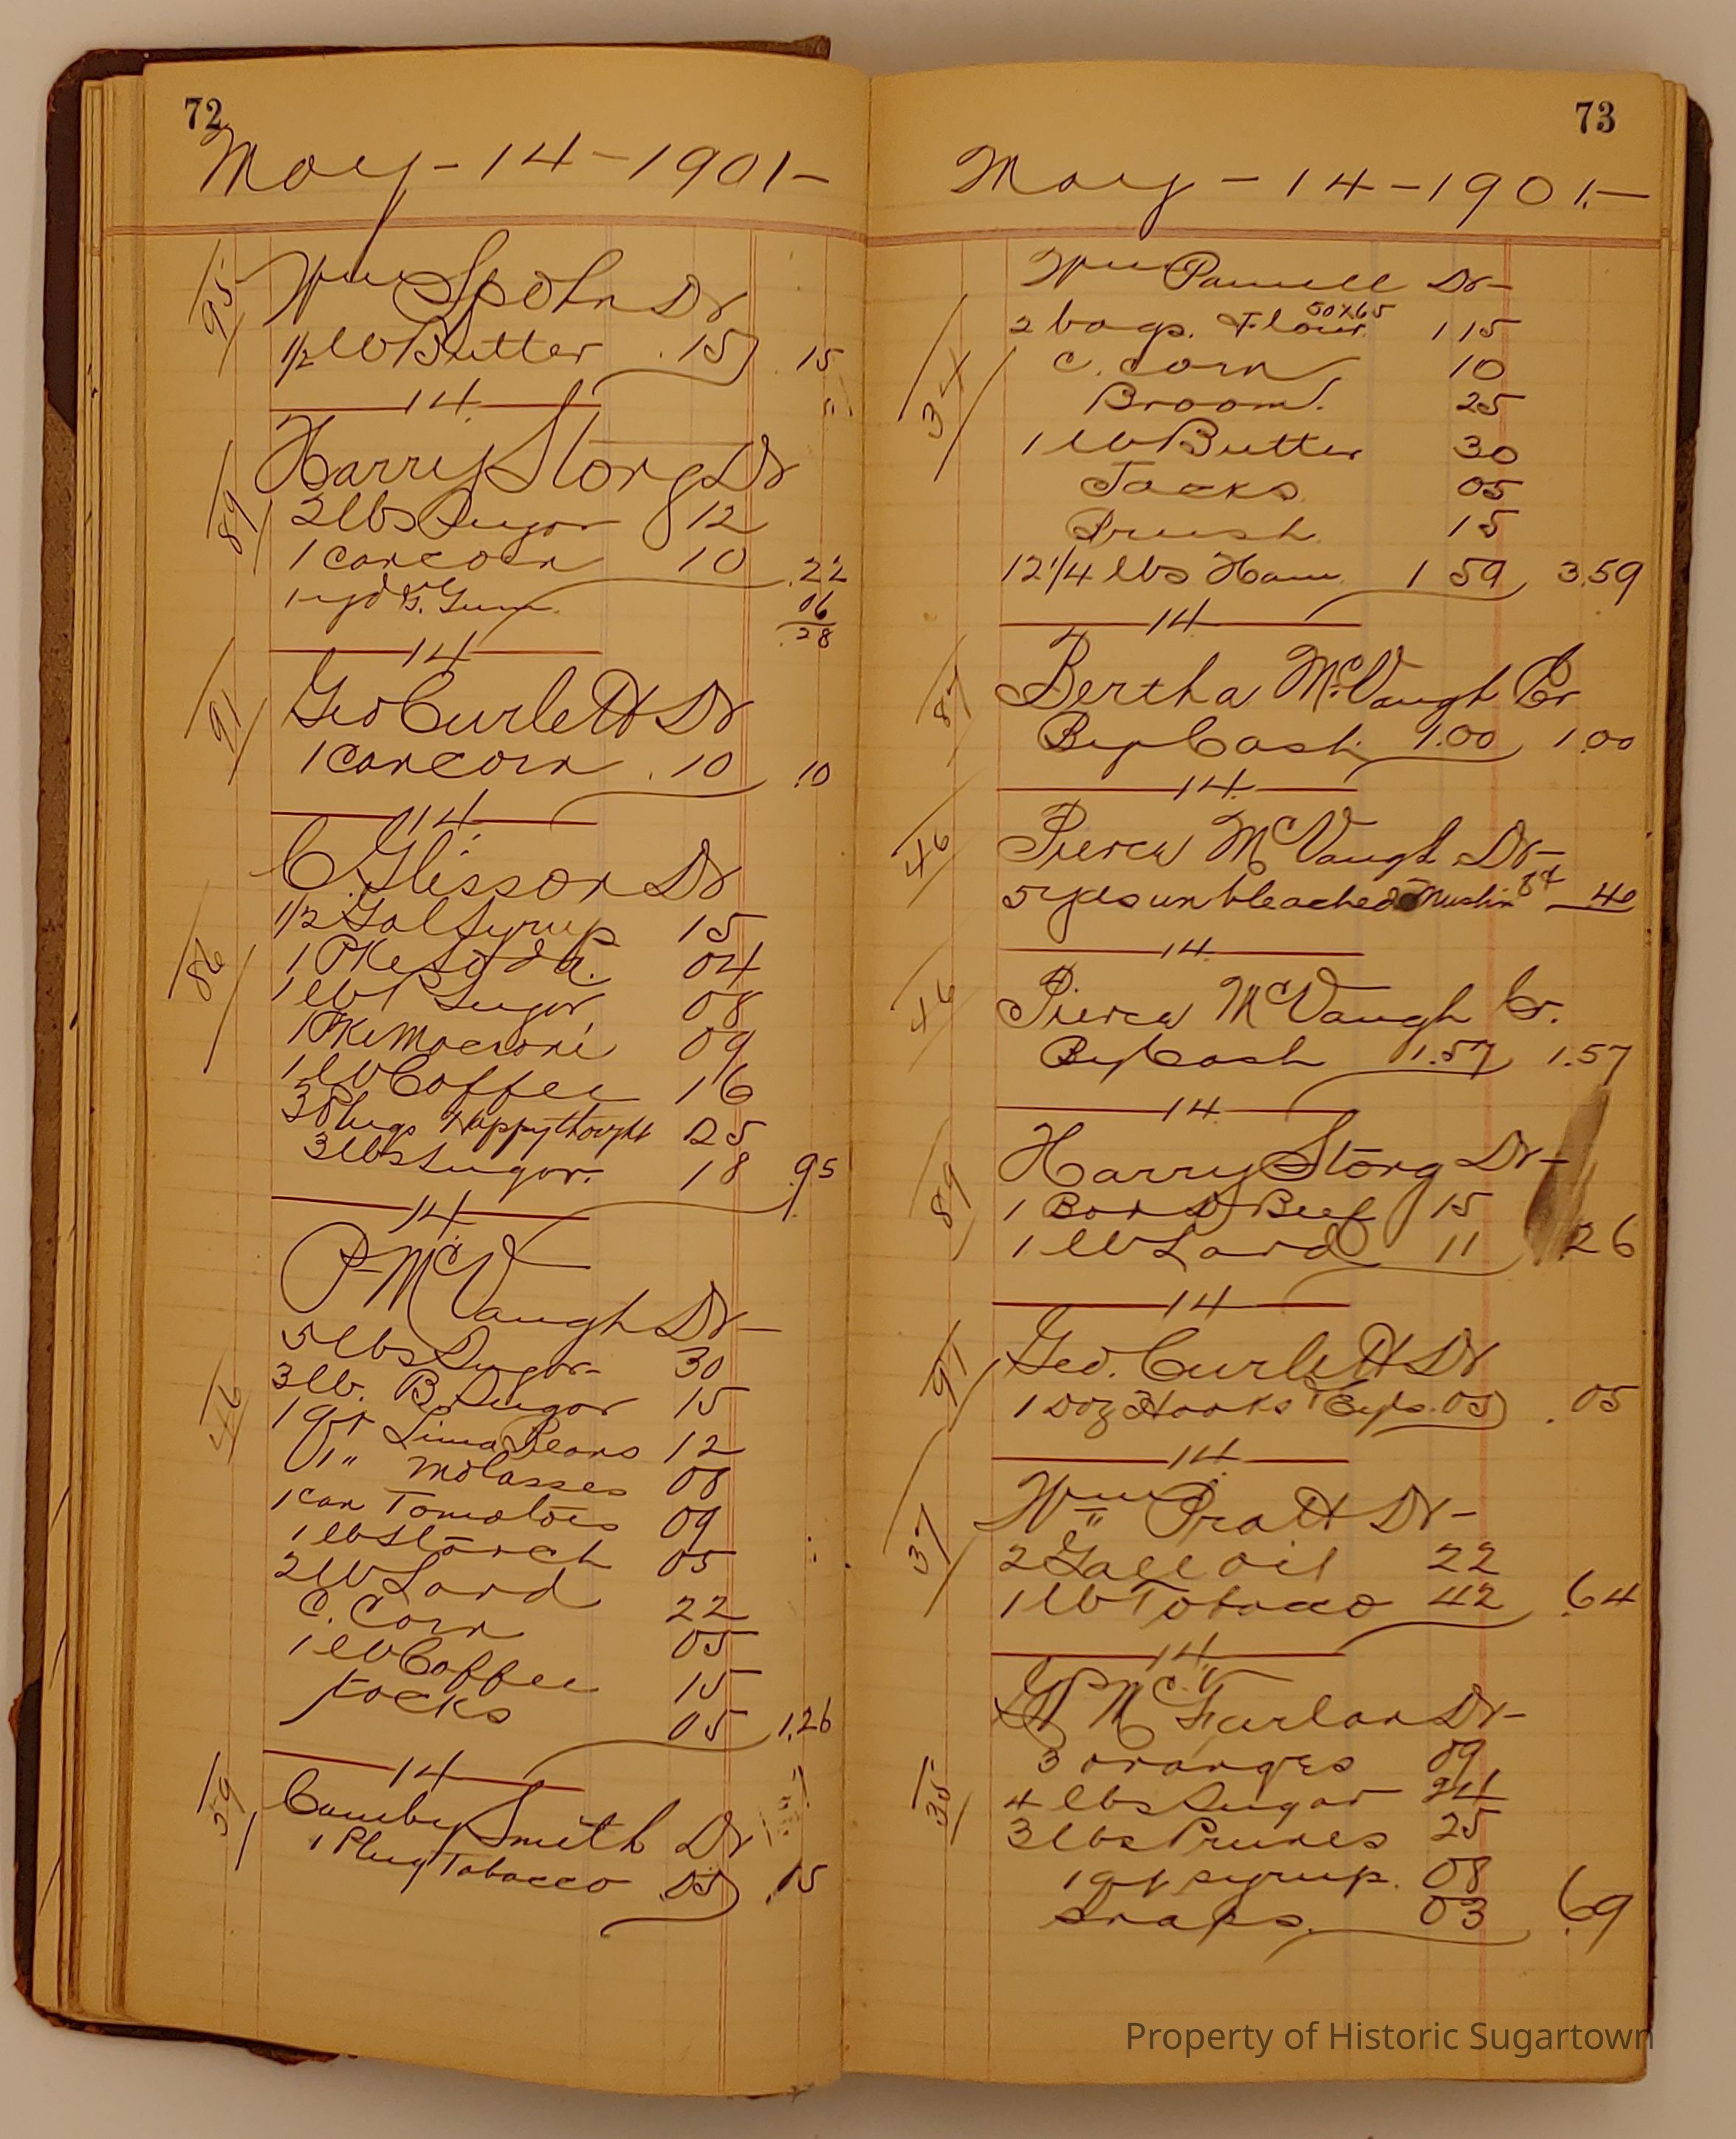 72
May - 14 - 1901 -
95
Wm Spohn Dr
1/2 lb Butter .15 .15
14
Harry Storg Dr
89
2 lbs Sugar 12
1 can corn 10 .22
1 yd G. 06
.28
14
91
Geo Curlett Dr
1 can corn .10 .10
14
C. Glisson Dr
86
1/2 Gal Syrup 15
1 PKe Soda. 04
1 lb P Sugar, 08
1 PKe Macroni 09
1 lb Coffee 16
3 Plugs Happy thought 25
3 lbs Sugar. 18 .95
14
P McVaugh Dr -
46
5 lbs Sugar 30
3 lb. B Sugar 15
1 qrt Lima Beans 12
1 " Molasses 08
1 can Tomatoes 09
1 lb Starch 05
2 lb Lard 22
C. Corn 05
1 lb Coffee 15
Tacks 05 1.26
14
59
Smith Dr
1 Plug Tobacco .15 .15
73
May - 14 - 1901. -
Wm Pannell Dr -
34
2 bags. Flour 50 & 65 1 15
C. Corn 10
Broom. 25
1 lb Butter 30
Tacks 05
Brush 15
12 1/4 lbs Ham 1 59 3.59
14
87
Bertha McVaugh Cr
By Cash 1.00 1.00
14
46
Pierce McVaugh Dr -
5 yds unbleached Muslin 8¢ 40
14
46
Pierce McVaugh Cr.
By Cash 1.57 1.57
14
89
Harry Storg Dr -
1 Beef 15
1 lb Lard 11 .26
14
91
Geo. Curlett Dr
1 Doz Hooks & Eyes .05 .05
14
37
Wm Pratt Dr -
2 Gall oil 22
1 lb Tobacco 42 .64
14
McFarlan Dr -
35
3 oranges 09
4 lbs Sugar 24
3 lbs Prunes 25
1 qrt syrup. 08
snaps. 03 .69
Property of Historic Sugartown